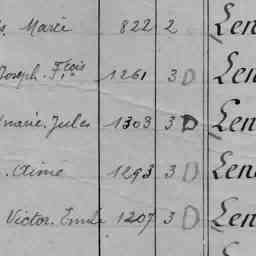 Marie 822 2 Len
Joseph. Fçois 1261 3 D Len
marie. Jules 1303 3 D Len
. Aimé 1293 3 D Len
Victor. Emile 1207 3 D Len